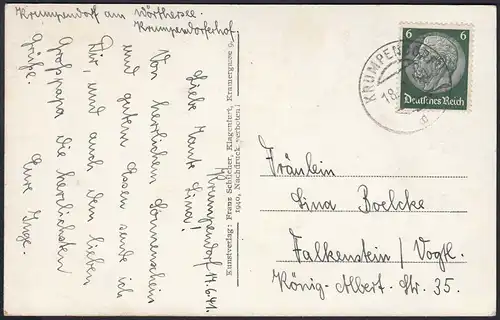 Krumpendorf am Wörthersee.
Krumpendorferhof.
Krumpendorf 17.6.41.
Liebe Tante Lina!
Von herrlichem Sonnenschein
und gutem Essen sende ich
Dir, und auch dem lieben
Großpapa die herzlichsten
Grüße.
Eure Inge.
Kunstverlag: Franz Schilcher, Klagenfurt, Kramergasse 9,
1940, Nachdruck verboten!
6 6
Deutsches Reich
KRUMPEN
18.
a
Fräulein
Lina Boelcke
Falkenstein / Vogtl.
König-Albert-Str. 35.